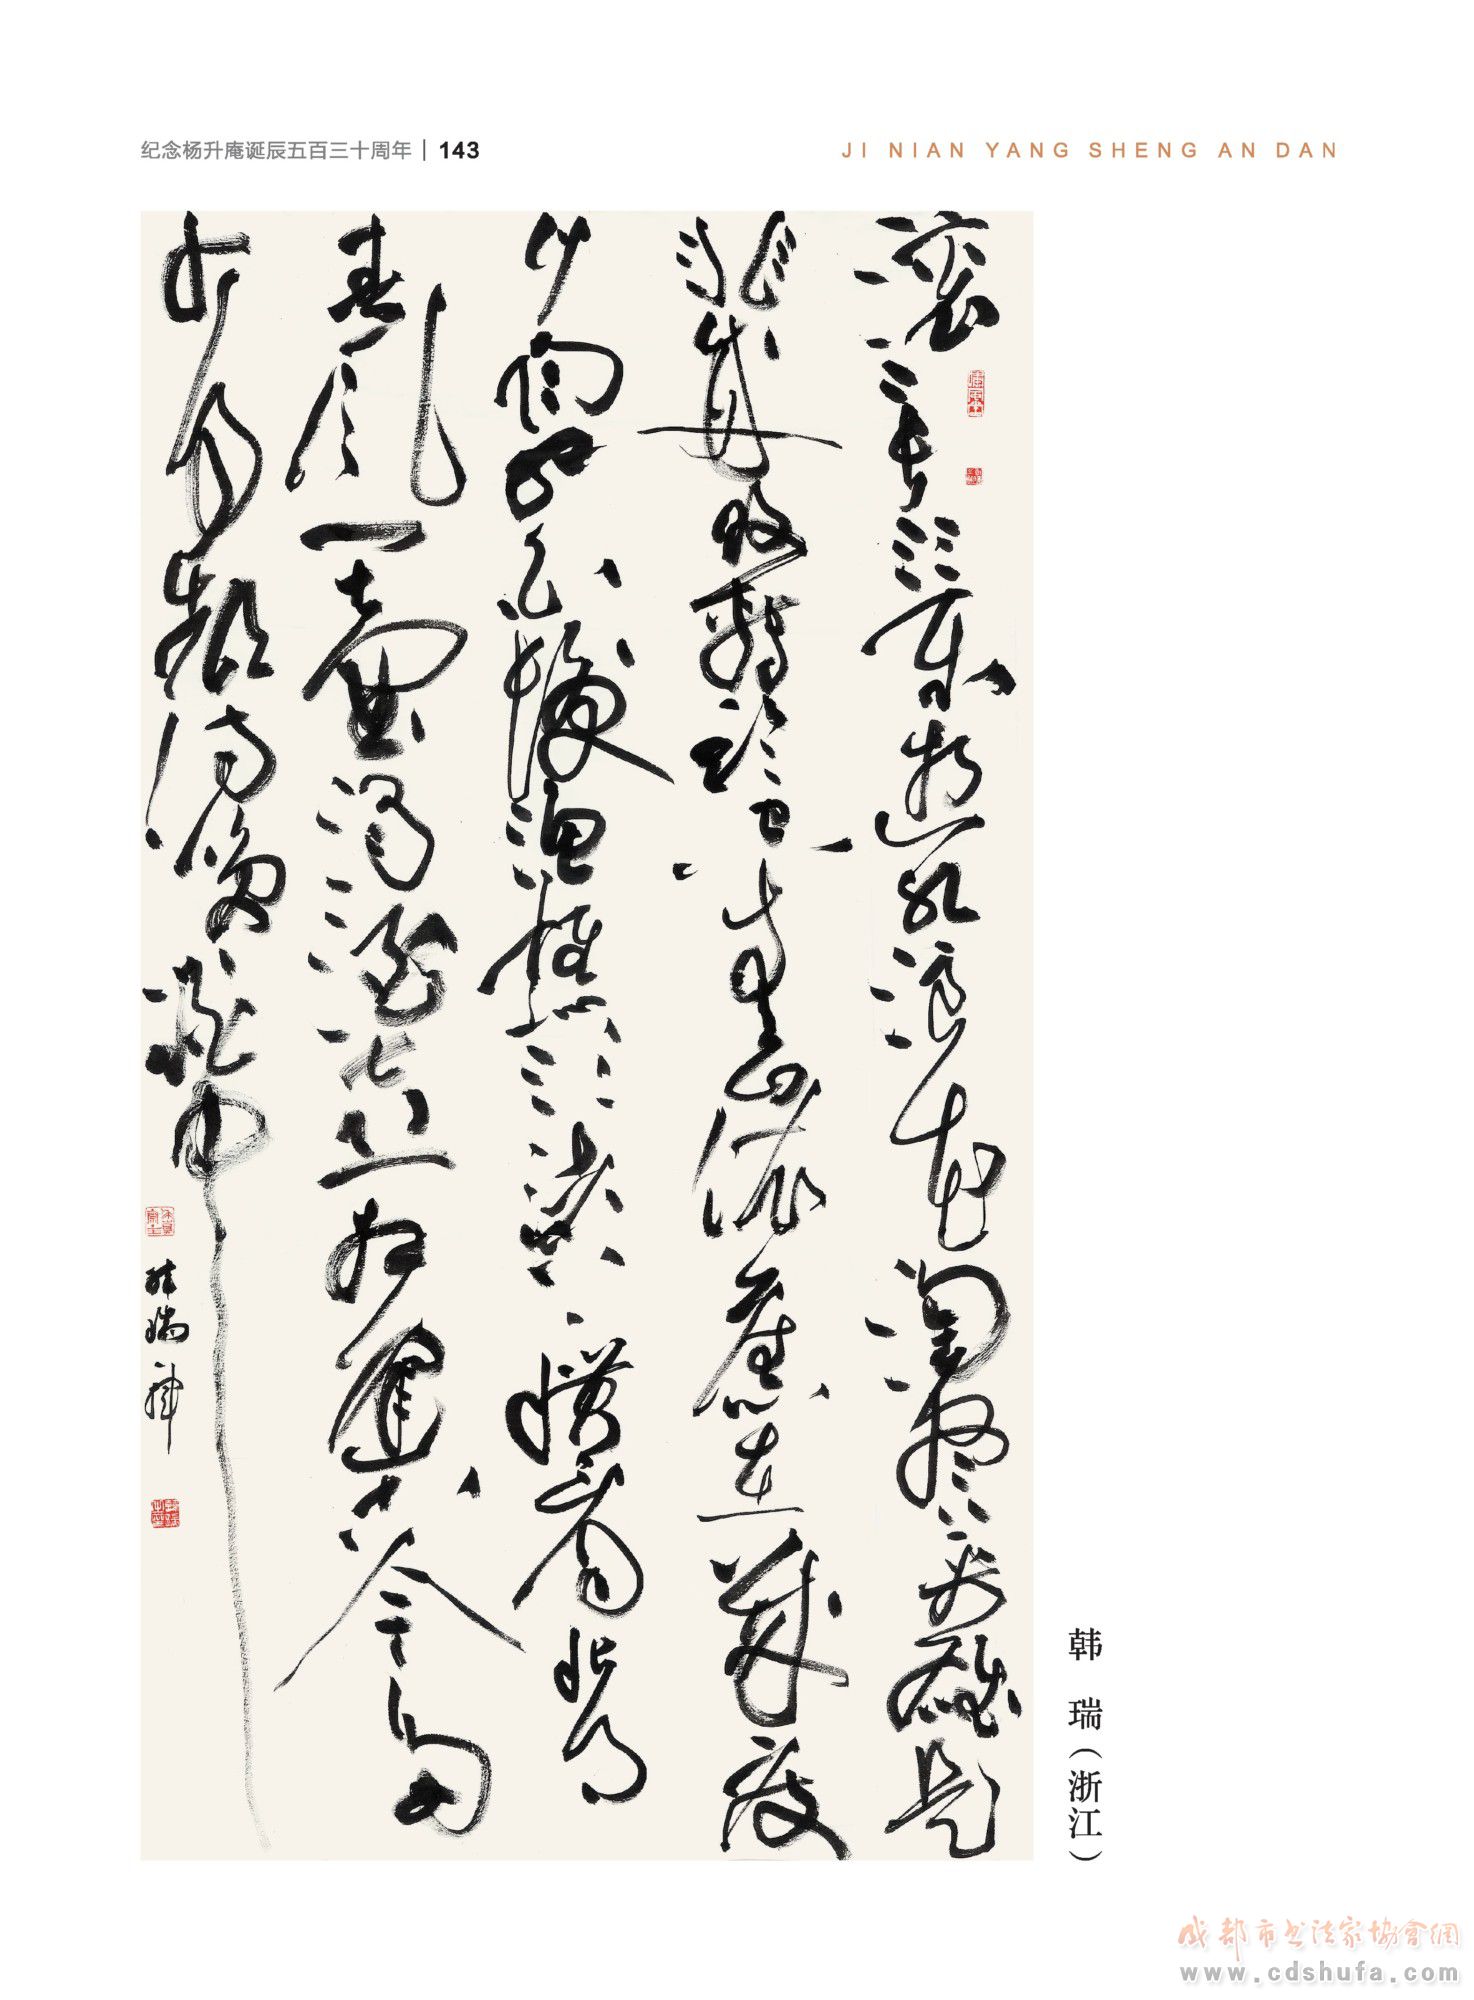 纪念杨升庵诞辰五百三十周年 | 143
JI NIAN YANG SHENG AN DAN
滚滚長江東逝水浪花淘盡英雄是
非成敗轉頭空青山依舊在幾度
夕陽紅白髮漁樵江渚上慣看秋月
春風一壺濁酒喜相逢古今多
少事都付笑談中
韩瑞书
韩 瑞（浙江）
成都市书法家协会网
www.cdshufa.com